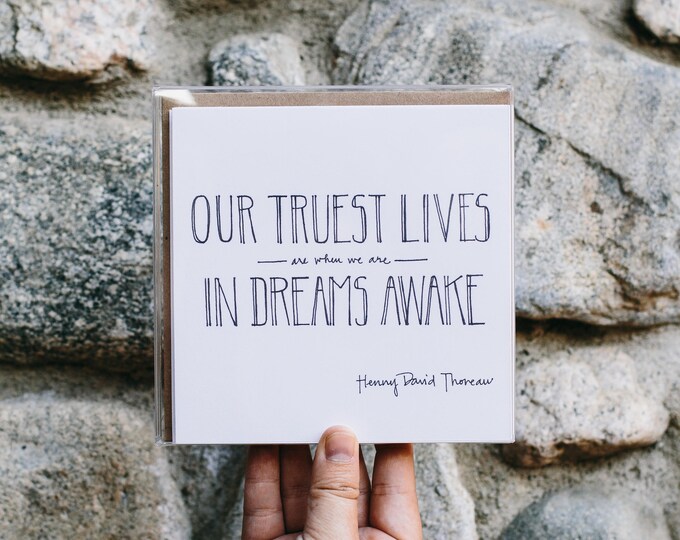 OUR TRUEST LIVES
are when we are
IN DREAMS AWAKE
Henry David Thoreau